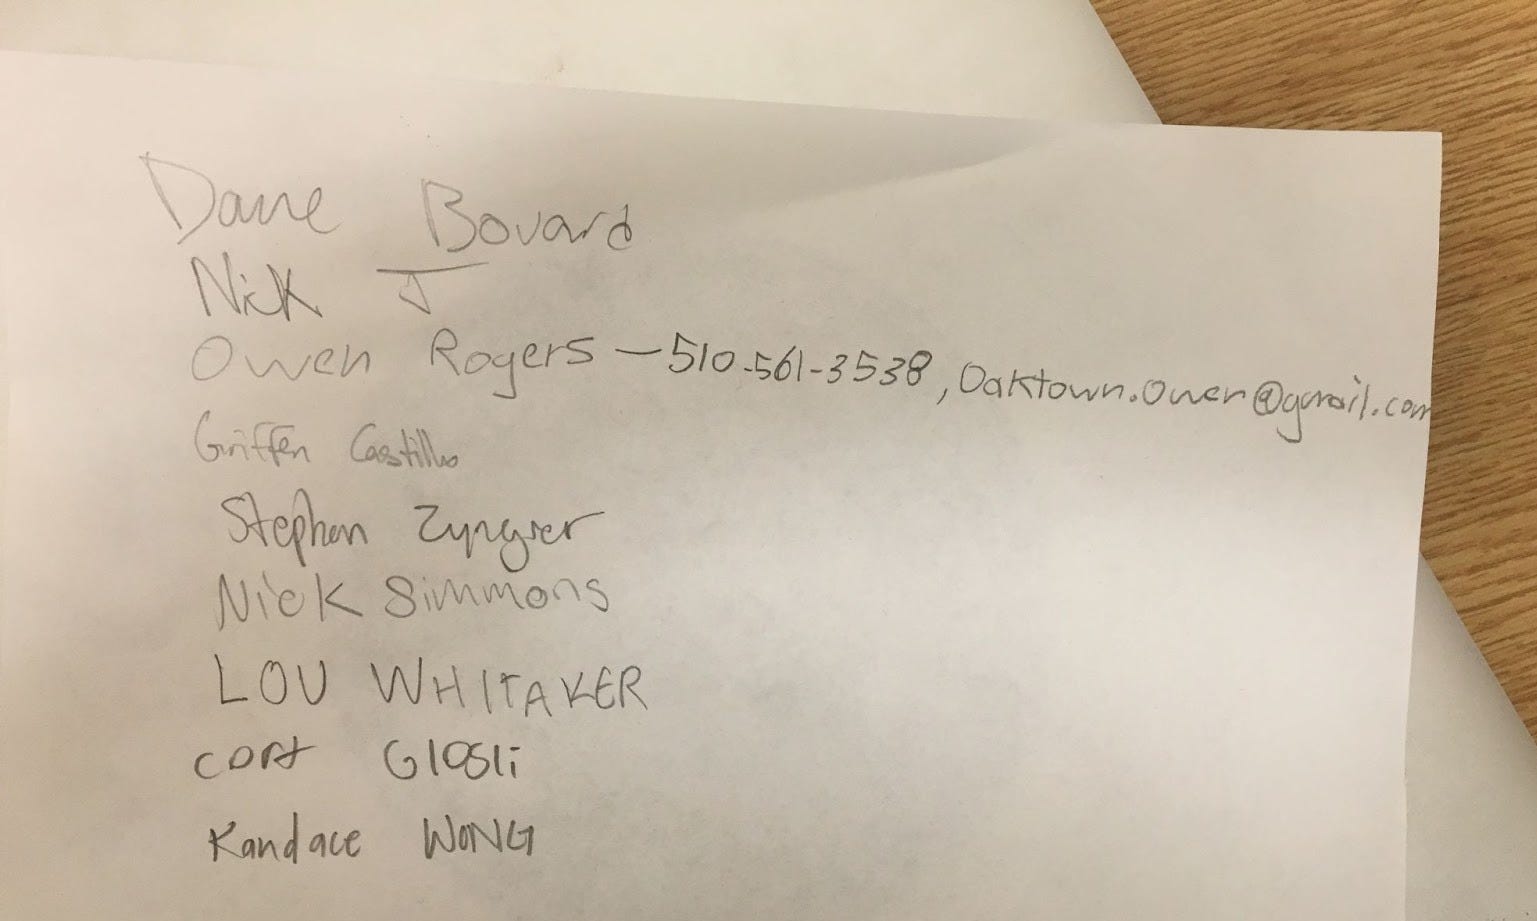 Dane Bovard
Nick J
Owen Rogers — 510-561-3538, Oaktown.Owen@gmail.com
Griffen Castillo
Stephen Zyngier
Nick Simmons
LOU WHITAKER
cort Glosli
Kandace WONG